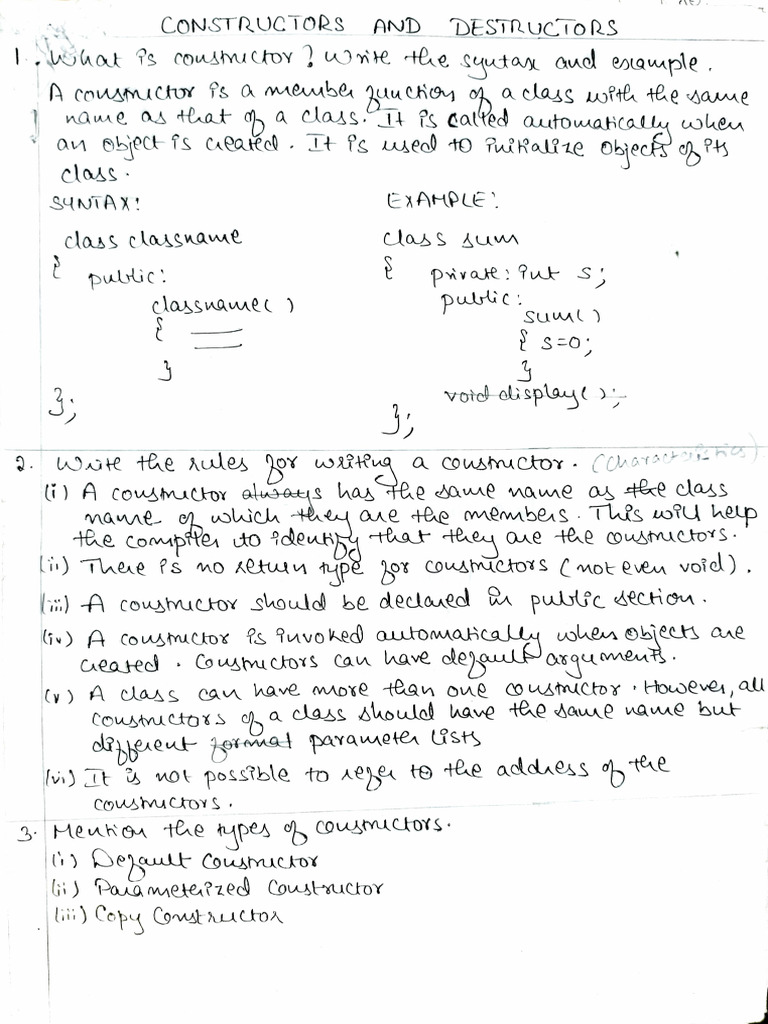 CONSTRUCTORS AND DESTRUCTORS
1. What is constructor? Write the syntax and example.
A constructor is a member function of a class with the same
name as that of a class. It is called automatically when
an object is created. It is used to initialize objects of its
class.
SYNTAX:
class classname
{
public:
classname()
{
}
};
EXAMPLE:
class sum
{ private: int s;
public:
sum()
{ s=0;
}
void display();
};
2. Write the rules for writing a constructor. (characteristics)
(i) A constructor always has the same name as the class
name of which they are the members. This will help
the compiler to identify that they are the constructors.
(ii) There is no return type for constructors (not even void).
(iii) A constructor should be declared in public section.
(iv) A constructor is invoked automatically when objects are
created. Constructors can have default arguments.
(v) A class can have more than one constructor. However, all
constructors of a class should have the same name but
different format parameter lists
(vi) It is not possible to refer to the address of the
constructors.
3. Mention the types of constructors.
(i) Default Constructor
(ii) Parameterized Constructor
(iii) Copy Constructor